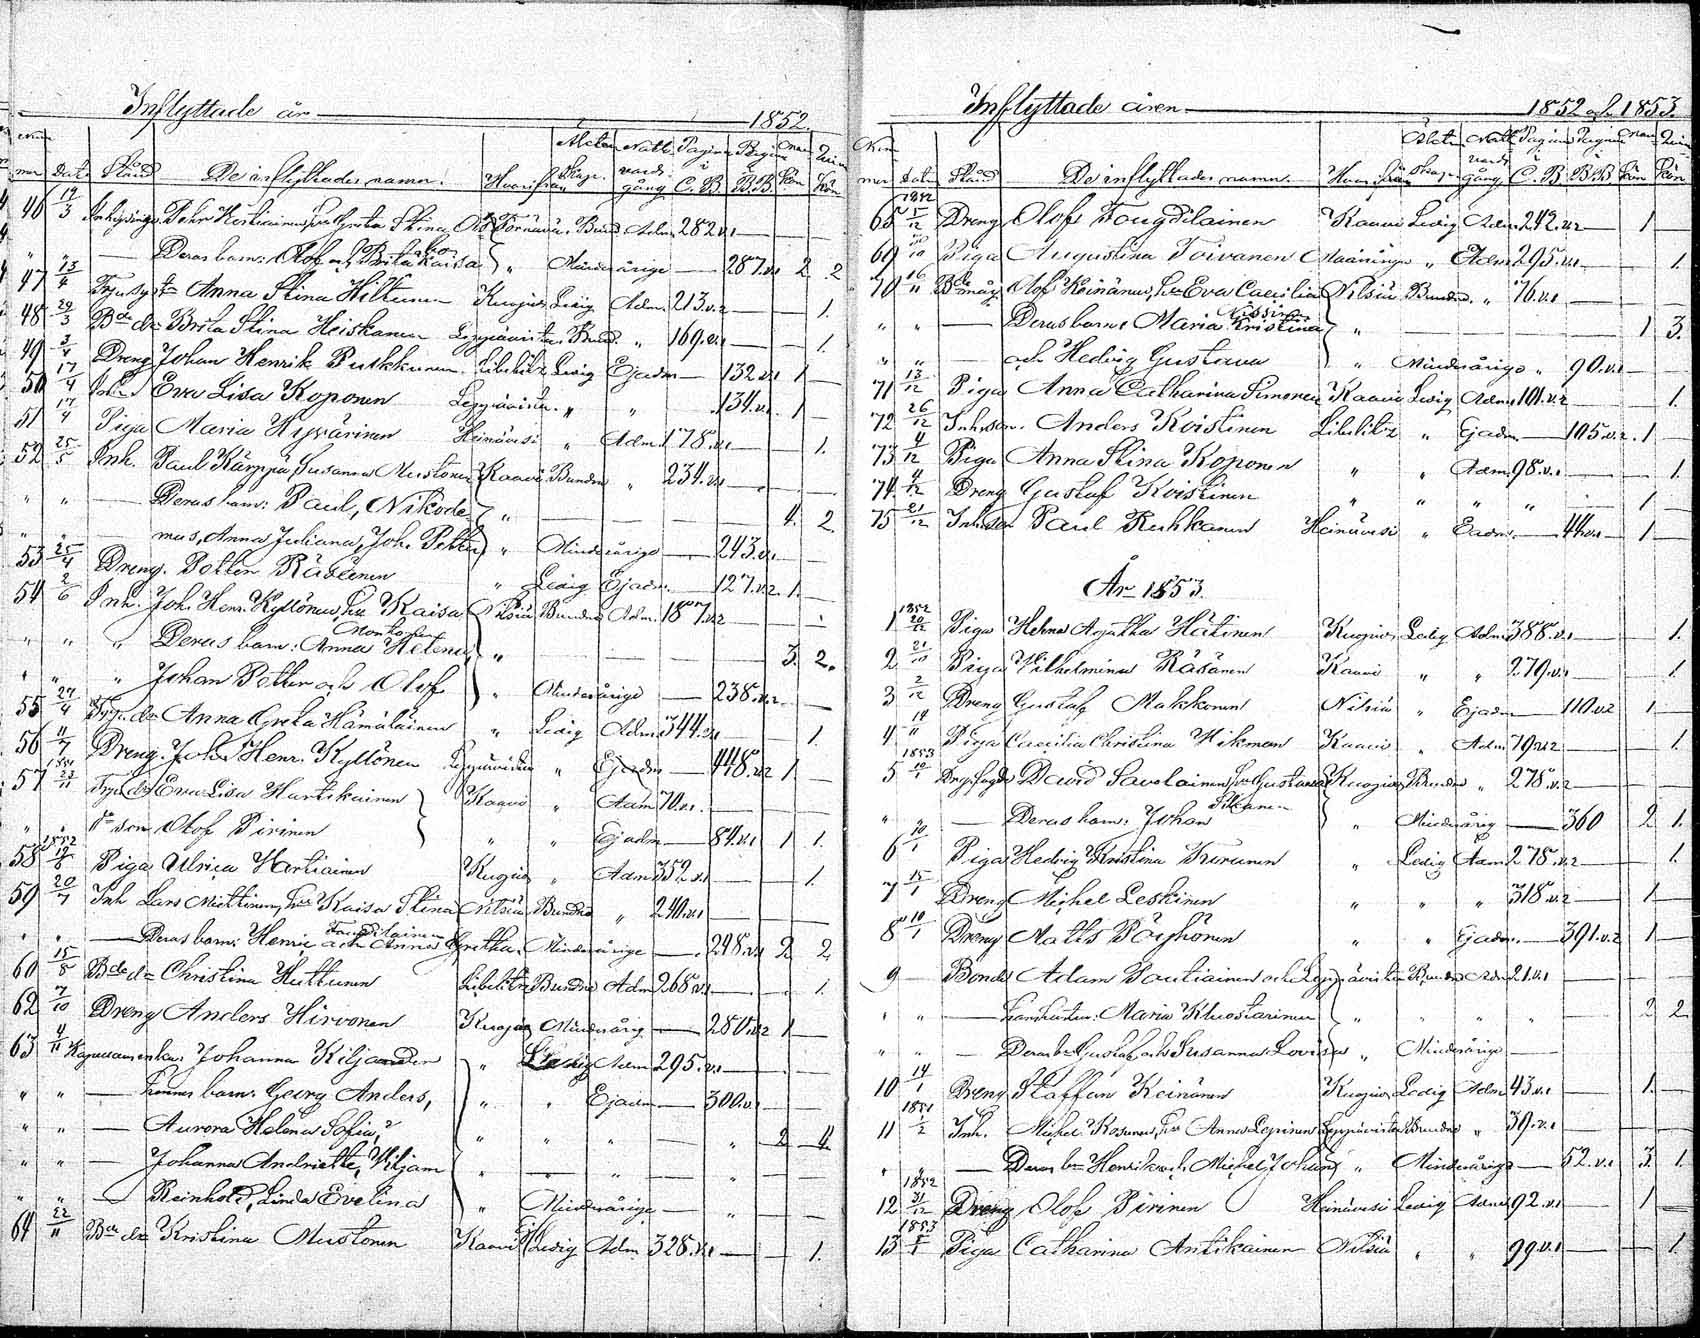 Inflyttade år 1852.
Num mer Dato Stånd De inflyttades namn. Hvarifrån Äkten skap. Nattvards gång Pagina i C.B. Pagina B.B. Man kön Qvin kön
46 19/3 Pehr Hu Greta Stina Törnävä. Bund. Adm. 282.v.1
" " — Deras barn: Olof och Brita Kaisa " Minderårige — 287.v.1 2 2
47 13/4 Anna Stina Hiltunen Kuopio Ledig Adm. 213.v.2 — 1.
48 29/3 Bde dr Brita Stina Heiskanen Leppävirta Bund. " 169.v.1 — 1.
49 3/4 Dreng Johan Henrik Putkkunen Libelitz Ledig Ejadm — 132.v.1 1 —
50 17/4 Eva Lisa Koponen Leppävirta " " 134.v.1 1
51 17/4 Piga Maria Hyvärinen Heinävesi " Adm. 178.v.1 — 1.
52 25/5 Inh. Paul Kärppä, Susanna Mustonen Kaavi Bundne " 234.v.1 —
" " — Deras barn: Paul, Nikode- " — 4. 2
" " mus, Anna Juliana, Joh. Petter " Minderårige — 243.v.1 —
53 25/4 Dreng. Petter Räsänen " Ledig Ejadm. — 127.v.2 1. —
54 2/6 Inh. Joh. Henr. Kyllönen, hu Kaisa Nilsiä Bundne Adm. 187.v.2 —
Monkonen
" " " Deras barn: Anna Helena, " — 3. 2.
" " " Johan Petter och Olof " Minderårige — 238.v.2 —
55 27/4 Anna Greta Hämäläinen " Ledig Adm. 344.v.1 — 1.
56 11/7 Dreng. Joh. Henr. Kyllönen Leppävirta " Ejadm — 448.v.2 1 —
57 1851 23/11 Eva Lisa Hartikainen Kaavi " Adm 70.v.1 —
" " son Olof Pirinen " " Ejadm — 84.v.1 1 1.
58 1852 Piga Ulrica Hartikainen Kuopio " Adm 352.v.1 — 1.
59 20/7 Inh Lars Miettinen, hu Kaisa Stina Nilsiä Bundne " 240.v.1 —
" " — Deras barn: Henric och Anna Gretha. Minderårige — 248.v.1 2 2
60 15/8 Bde dr Christina Huttunen Libelitz Bundne Adm 268.v.1 — 1.
62 7/10 Dreng Anders Hirvonen Kuopio Minderårig — 280.v.2 1 —
63 4/11 Johanna Kiljander " Ledig Adm 295.v.1 —
" " — hennes barn: Georg Anders, " " Ejadm — 300.v.1 —
" " — Aurora Helena Sofia, " " " — " 2 4.
" " — Johanna Andriette, Viljam " — " — "
" " — Reinhold, Linda Evelina " Minderårige — "
64 22/11 Bde dr Kristina Mustonen Kaavi Ledig Adm. 328.v.1 — 1.
Inflyttade åren 1852 och 1853.
Num mer Dato Stånd De inflyttades namn. Hvarifrån Äkten skap. Natt vards gång. Pagina i C.B. Pagina i B.B. Man kön Qvin kön
1852
65 5/12 Dreng Olof Fougdilainen Kaavi Ledig Adm. 242.v.2 — 1 —
69 Piga Augustina Toivanen Maaninga " Adm 295.v.1 — 1.
70 16/11 Bde måg Olof Keinänen, hu Eva Caecilia Nilsiä Bundne " 76.v.1 —
Nissinen
" " — Deras barn: Maria Kristina " — 1 3.
" " — och Hedvig Gustava " Minderårige " 90.v.1 —
71 13/12 Piga Anna Catharina Simonen Kaavi Ledig Adm 101.v.2 — 1.
72 26/12 Inh. son. Anders Koistinen Libelitz " Ejadm. — 105.v.2 1 —
73 4/12 Piga Anna Stina Koponen " " Adm. 98.v.1 — 1.
74 4/12 Dreng Gustaf Koistinen " " " " 1 —
75 21/12 Inh. son Paul Ruhkanen Heinävesi " Eadm. — 44.v.1 1 —
År 1853.
1 1852 20/12 Piga Helena Agatha Hätinen Kuopio Ledig Adm. 388.v.1 — 1.
2 21/10 Piga Vilhelmina Räsänen Kaavi " " 279.v.1 — 1.
3 2/12 Dreng Gustaf Makkonen Nilsiä " Ejadm — 110.v.2 1 —
4 14/11 Piga Caecilia Christina Hikman Kaavi " Adm 79.v.2 — 1.
5 1853 10/1 David Savolainen, hu Gustava Kuopio Bundne " 278.v.2 —
" " — Deras barn: Johan " Minderårig — 360 2 1.
6 10/1 Piga Hedvig Kristina Kurunen " Ledig Adm 278.v.2 — 1.
7 15/1 Dreng Michel Leskinen " " " 318.v.2 — 1 —
8 10/1 Dreng Matts Pöyhönen " " Ejadm. — 391.v.2 1 —
9 — Bonde Adam Tautiainen och Leppävirta Bundne Adm 21.v.1 —
" " — hans hustru: Maria Kluostarinen " " " " — 2 2
" " — Deras br Gustaf och Susanna Lovisa " Minderårige —
10 14/1 Dreng Staffan Keinänen Kuopio Ledig Adm 43.v.1 — 1. —
11 1851 1/2 Inh. Michel Kosunen, hu Anna Lepinen Leppävirta Bundne " 39.v.1 —
" " — Deras br Henrik och Michel, Johan " Minderårige — 52.v.1 3. 1.
12 1852 31/12 Dreng Olof Pirinen Heinävesi Ledig Adm 92.v.1 — 1 —
13 1853 Piga Catharina Antikainen Nilsiä " " 99.v.1 — 1.